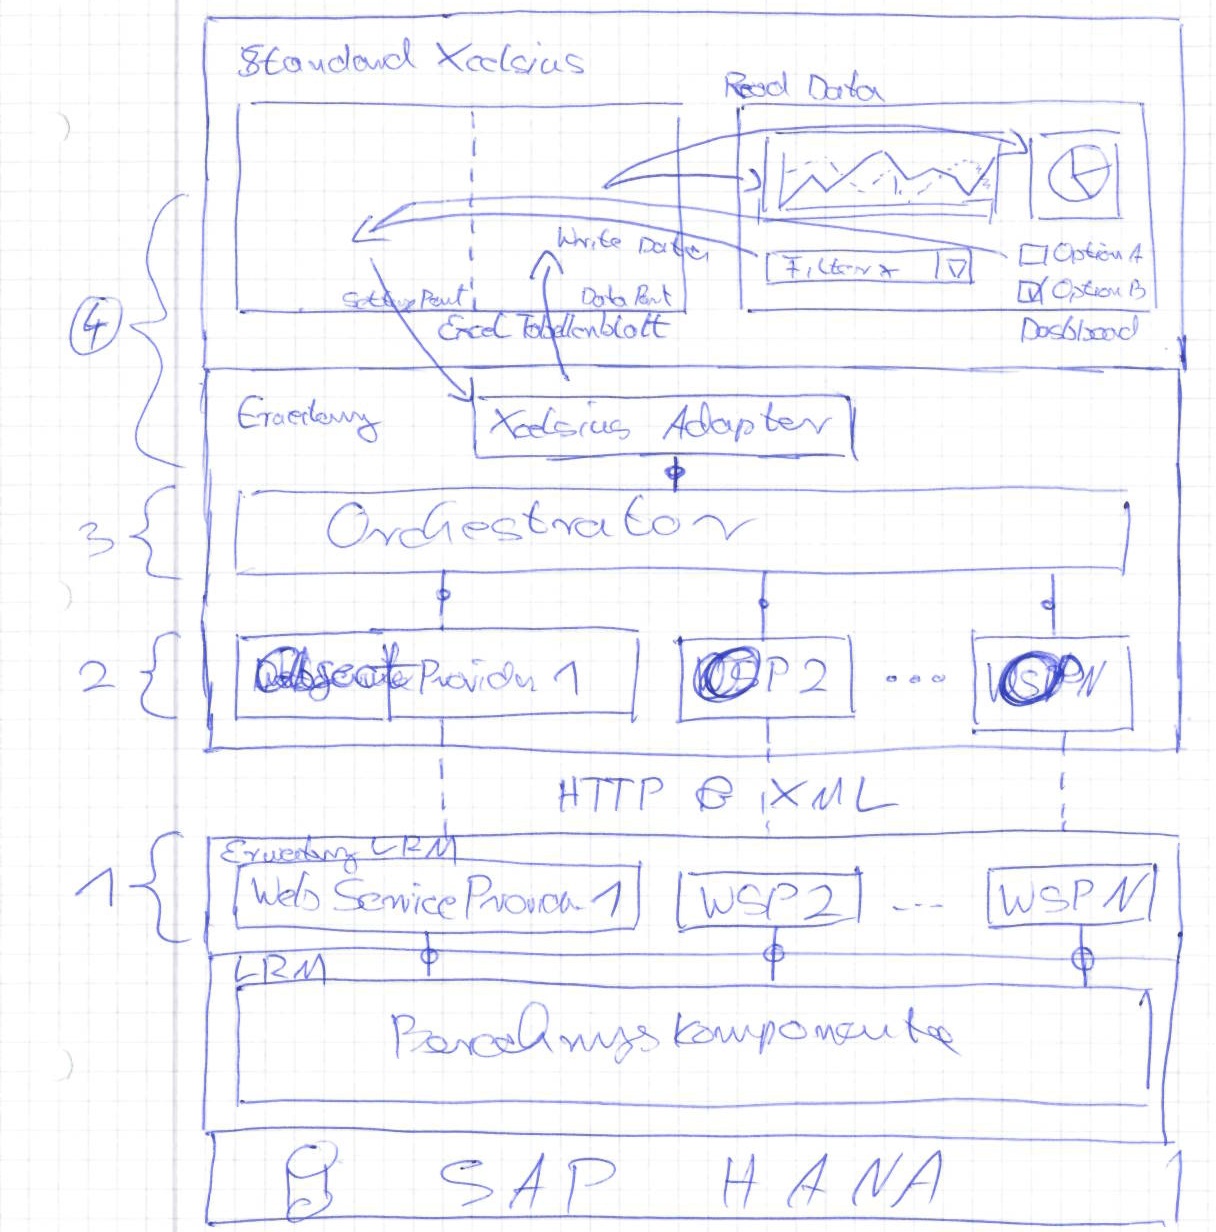 Standard Xcelsius
Read Data
Write Data
Filter x
Option A
Option B
Setting Part
Data Part
Excel Tabellenblatt
Dashboard
4
Erweiterung
Xcelsius Adapter
3
Orchestrator
2
Provider 1
WSP 2
...
WSP N
HTTP & XML
1
Erweiterung LRM
Web Service Provider 1
WSP 2
...
WSP N
LRM
Berechnungskomponente
SAP HANA